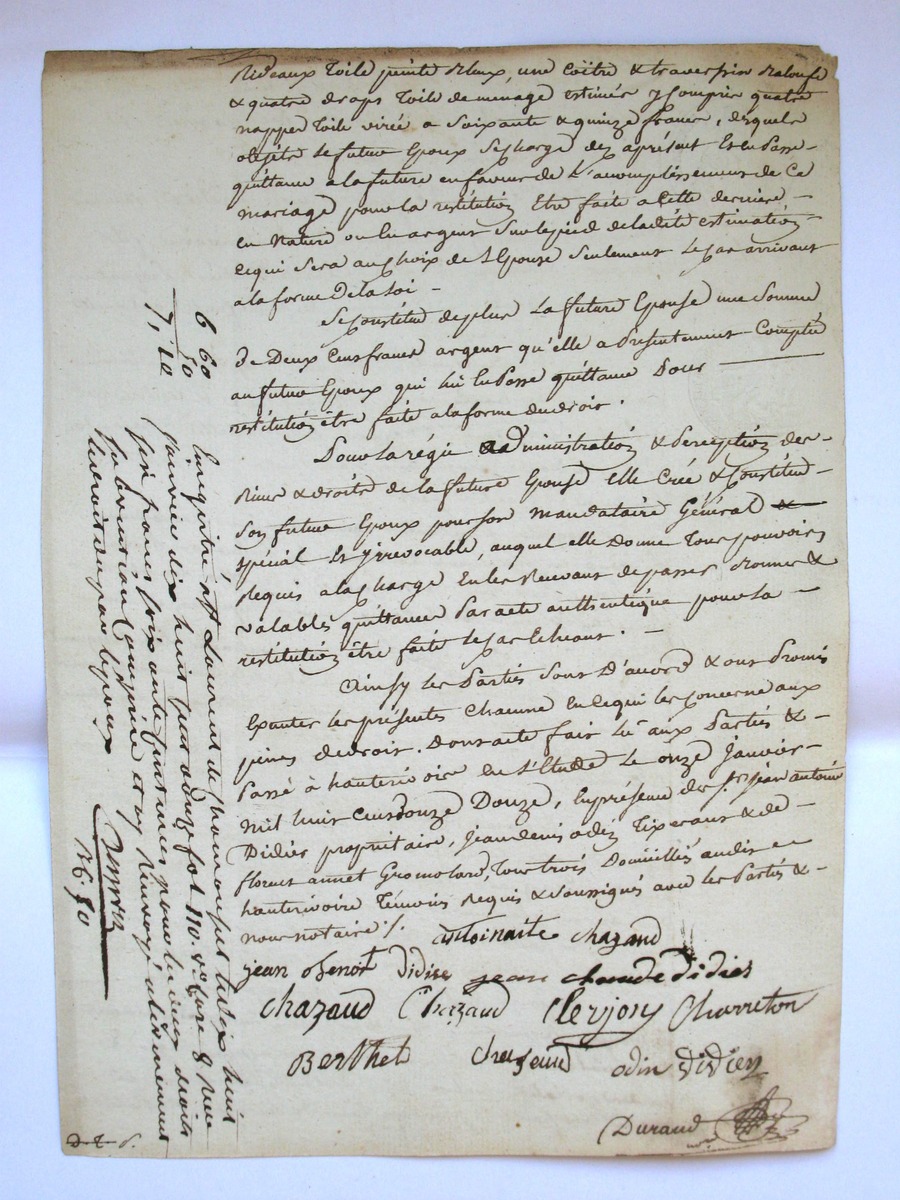 Rideaux toile peinte bleux, une coïtre & traversin balouse
& quatre draps toile de menage estimés y compris quatre
nappes toile virée a soixante & quinze francs, desquels
objets le futur Epoux se charge dez aprésent Et en Passe
quittance a la future en faveur de l'accomplissement de Ce
mariage pour la restitution Etre faite a Cette derniere
en Nature ou En argent sur le pied de la dite estimation
Ce qui sera au choix de l'Epouse seulement le Cas arrivant
a la forme de la Loi
Se Constitue de plus la future Epouse une somme
de Deux Cent francs argent qu'elle a Présentement Comptée
au futur Epoux qui lui En Passe quittance Pour
restitution être faite a la forme du droit.
Pour la régie administration & Perception des
biens & droits de la future Epouse elle Crée & Constitue
son futur Epoux pour son mandataire Général &
spécial Et irrevocable, auquel elle Donne tous pouvoirs
Requis a la Charge En les Recevant de passer donner &
valables quittances Par acte authentique pour la
restitution être faite le Cas Echéant.
Ainsy les Parties sont D'accord & ont Promis
Exécuter les présentes Chacune En Ce qui les Concerne aux
peines de droit. Dont acte fait Lû aux Parties &
Passé à hauterivoire En l'Etude le onze Janvier
mil huit Cent douze Douze, En présence de sr. jean antoine
Didier propriétaire, Jean denis odin Tixerant & de
florent annet Gromolard, tous trois Domiciliés audit
hauterivoire Témoins Requis & soussignés avec les Parties &
nous notaire /.
antoinaite chazaud
jean benoit didier jean claude didier
chazaud Chazaud Clerjon Charreton
Berthet odin didier
Durand
6 60
50
7, 10
Enregistré à St Laurent de Chamousset le dix huit
janvier dix huit cent douze fol. 110. vo. Case 8 Reçu
six francs soixante centimes pour les cinq droits
subvention comprise et un Renvoi